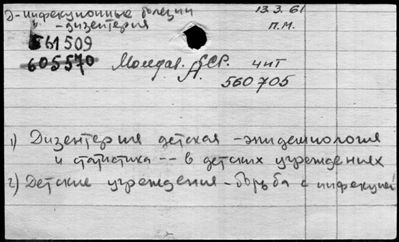 Э-инфекционные болезни 13.3.61
в -дизентерия П.М.
561509
605570 Молдав. ССР. чит
560705
1) Дизентерия детская - эпидемиология
и статистика -- в детских учреждениях
2) Детские учреждения - борьба с инфекцией